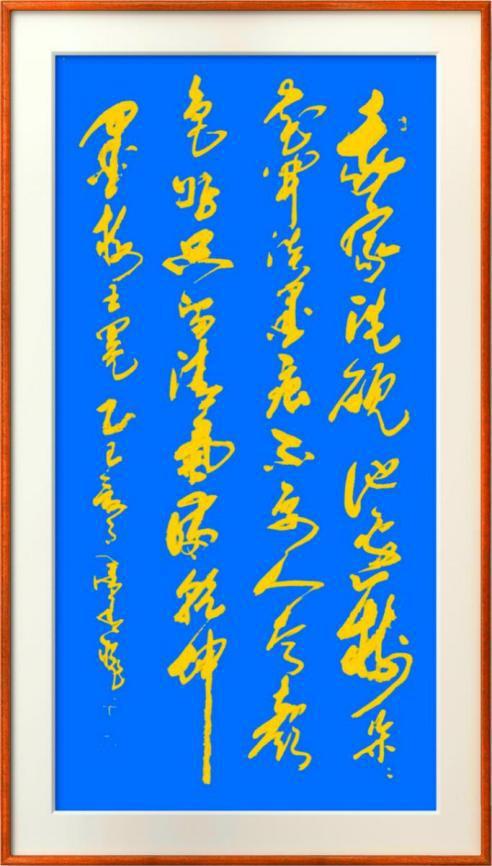 家洗砚池树朵々
花开淡墨痕不要人夸颜
色好只留清氣滿乾坤
墨梅王冕乙巳